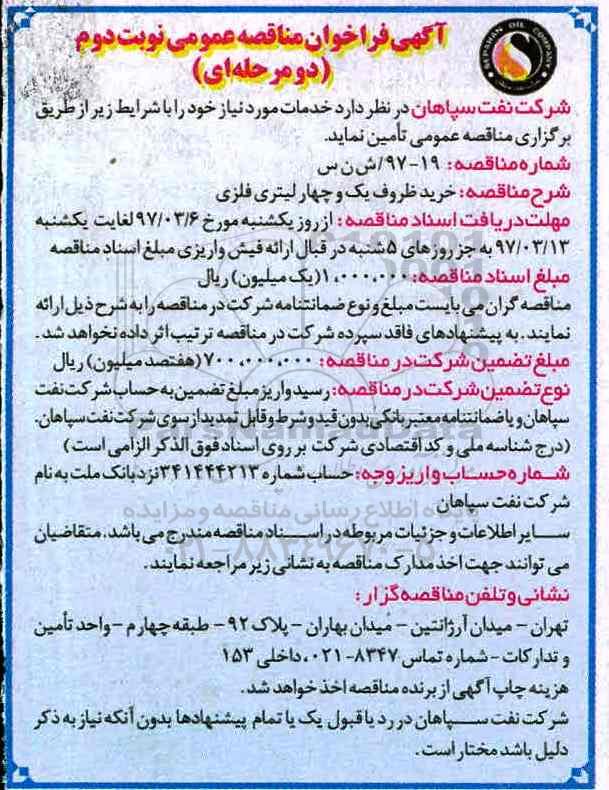 SEPAHAN OIL COMPANY
آگهی فراخوان مناقصه عمومی نوبت دوم
(دو مرحله‌ای)
شرکت نفت سپاهان در نظر دارد خدمات مورد نیاز خود را با شرایط زیر از طریق
برگزاری مناقصه عمومی تأمین نماید.
شماره مناقصه: ۱۹-۹۷/ش ن س
شرح مناقصه: خرید ظروف یک و چهار لیتری فلزی
مهلت دریافت اسناد مناقصه: از روز یکشنبه مورخ ۹۷/۰۳/۶ لغایت یکشنبه
۹۷/۰۳/۱۳ به جز روزهای ۵شنبه در قبال ارائه فیش واریزی مبلغ اسناد مناقصه
مبلغ اسناد مناقصه: ۱،۰۰۰،۰۰۰(یک میلیون) ریال
مناقصه گران می بایست مبلغ و نوع ضمانتنامه شرکت در مناقصه را به شرح ذیل ارائه
نمایند. به پیشنهادهای فاقد سپرده شرکت در مناقصه ترتیب اثر داده نخواهد شد.
مبلغ تضمین شرکت در مناقصه: ۷۰۰،۰۰۰،۰۰۰ (هفتصد میلیون) ریال
نوع تضمین شرکت در مناقصه: رسید واریز مبلغ تضمین به حساب شرکت نفت
سپاهان و یا ضمانتنامه معتبر بانکی بدون قید و شرط و قابل تمدید از سوی شرکت نفت سپاهان.
(درج شناسه ملی و کد اقتصادی شرکت بر روی اسناد فوق الذکر الزامی است)
شماره حساب واریز وجه: حساب شماره ۳۴۱۴۴۴۲۱۳ نزد بانک ملت به نام
شرکت نفت سپاهان
سایر اطلاعات و جزئیات مربوطه در اسناد مناقصه مندرج می باشد، متقاضیان
می توانند جهت اخذ مدارک مناقصه به نشانی زیر مراجعه نمایند.
نشانی و تلفن مناقصه گزار:
تهران - میدان آرژانتین - میدان بهاران - پلاک ۹۲ - طبقه چهارم - واحد تأمین
و تدارکات - شماره تماس ۸۳۴۷-۰۲۱، داخلی ۱۵۳
هزینه چاپ آگهی از برنده مناقصه اخذ خواهد شد.
شرکت نفت سپاهان در رد یا قبول یک یا تمام پیشنهادها بدون آنکه نیاز به ذکر
دلیل باشد مختار است.